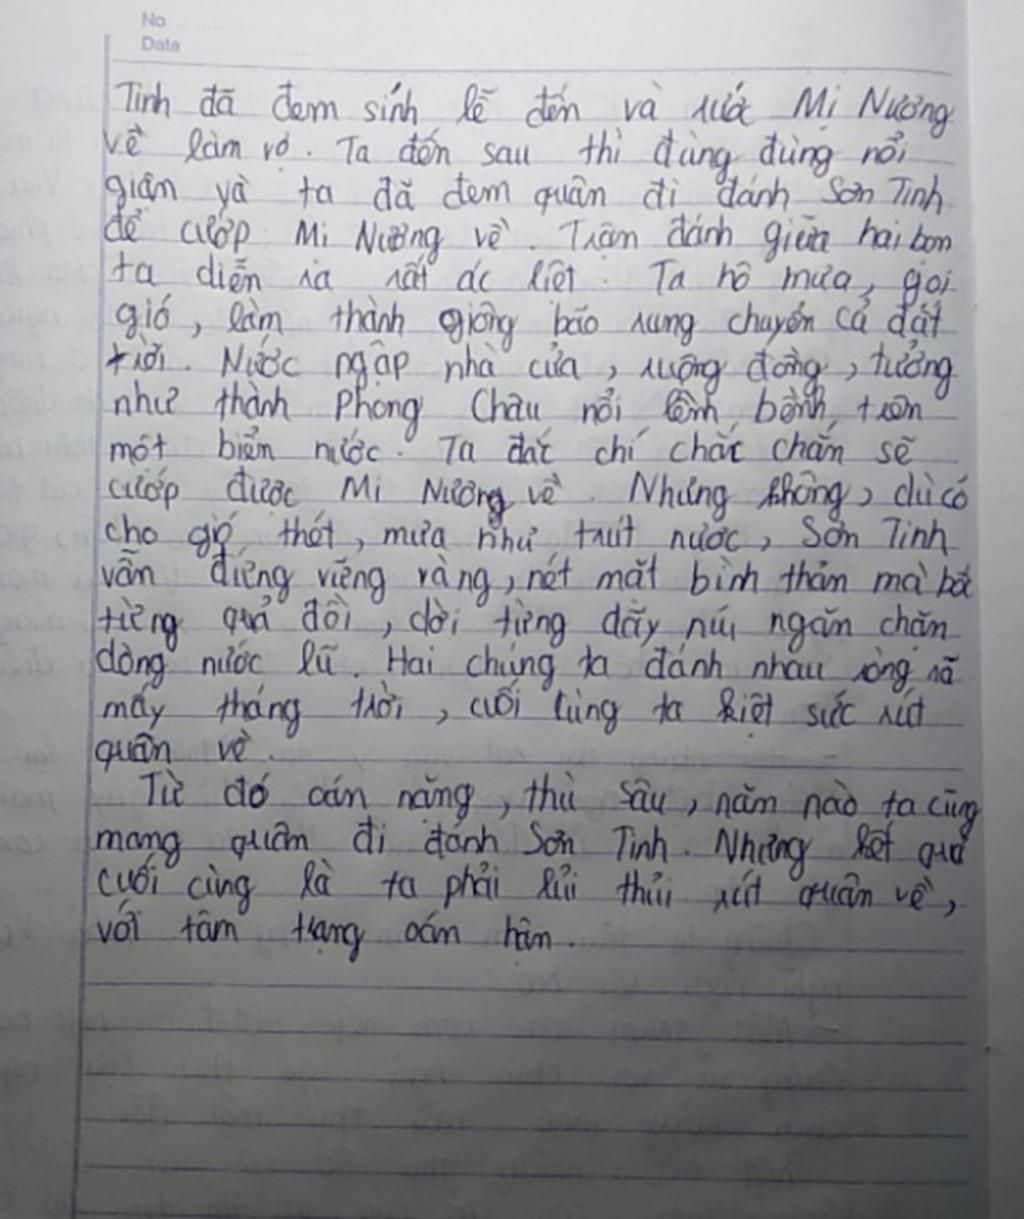 No
Date
Tinh đã đem sính lễ đến và rước Mị Nương
về làm vợ. Ta đến sau thì đùng đùng nổi
giận và ta đã đem quân đi đánh Sơn Tinh
để cướp Mị Nương về. Trận đánh giữa hai bọn
ta diễn ra rất ác liệt. Ta hô mưa, gọi
gió, làm thành giông bão rung chuyển cả đất
trời. Nước ngập nhà cửa, ruộng đồng, tưởng
như thành Phong Châu nổi lềnh bềnh trên
một biển nước. Ta đắc chí chắc chắn sẽ
cướp được Mị Nương về. Nhưng không, dù có
cho gió thét, mưa như trút nước, Sơn Tinh
vẫn đứng vững vàng, nét mặt bình thản mà bốc
từng quả đồi, dời từng dãy núi ngăn chặn
dòng nước lũ. Hai chúng ta đánh nhau ròng rã
mấy tháng trời, cuối cùng ta kiệt sức rút
quân về.
Từ đó oán nặng, thù sâu, năm nào ta cũng
mang quân đi đánh Sơn Tinh. Nhưng kết quả
cuối cùng là ta phải lủi thủi rút quân về,
với tâm trạng oán hận.